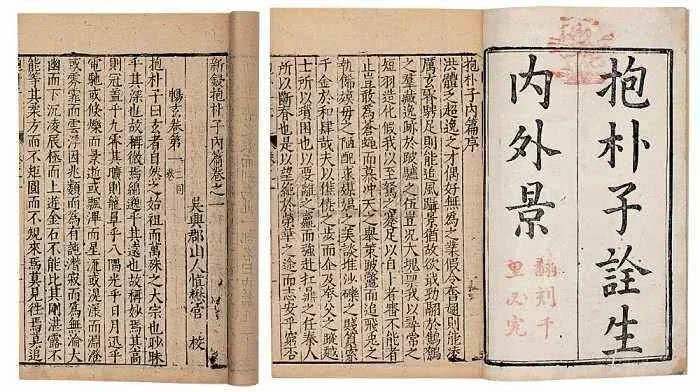 抱朴子詮生
內外景
翻刻千
里必究
抱朴子內篇序
洪體乏超逸之才偶好無為之業假令奮翅則能凌
厲玄霄騁足則能追風躡景猶故欲戢勁翮於鷦鷯
之羣藏逸跡於跛驢之伍豈況大塊稟我以尋常之
短羽造化假我以至駑之蹇足以自卜者審不能者
止豈敢為蒼蠅而慕冲天之舉策跛鱉而追飛兔之
軌飾嫫母之陋醜求媒陽之美談堆沙礫之賤質索
千金於和肆哉夫以僬僥之步而企及夸父之蹤近
士所以躓閡也以要離之羸而強赴扛鼎之任秦人
所以斷筋也是以望絕於榮華之途而志安乎窮否
新鋟抱朴子內篇卷之一
吳興郡山人慎懋官 校
暢玄卷第一
抱朴子曰玄者自然之始祖而萬殊之大宗也眇眛
乎其深也故稱微焉綿邈乎其遠也故稱妙焉其高
則冠蓋乎九霄其曠則籠罩乎八隅光乎日月迅乎
電馳或倏爍而景逝或飄滭而星流或滉漾而淵澄
或雰霏而雲浮因兆類而為有託潛寂而為無淪大
幽而下沉凌辰極而上遊金石不能比其剛湛露不
能等其柔方而不矩圓而不規來焉莫見往焉莫追